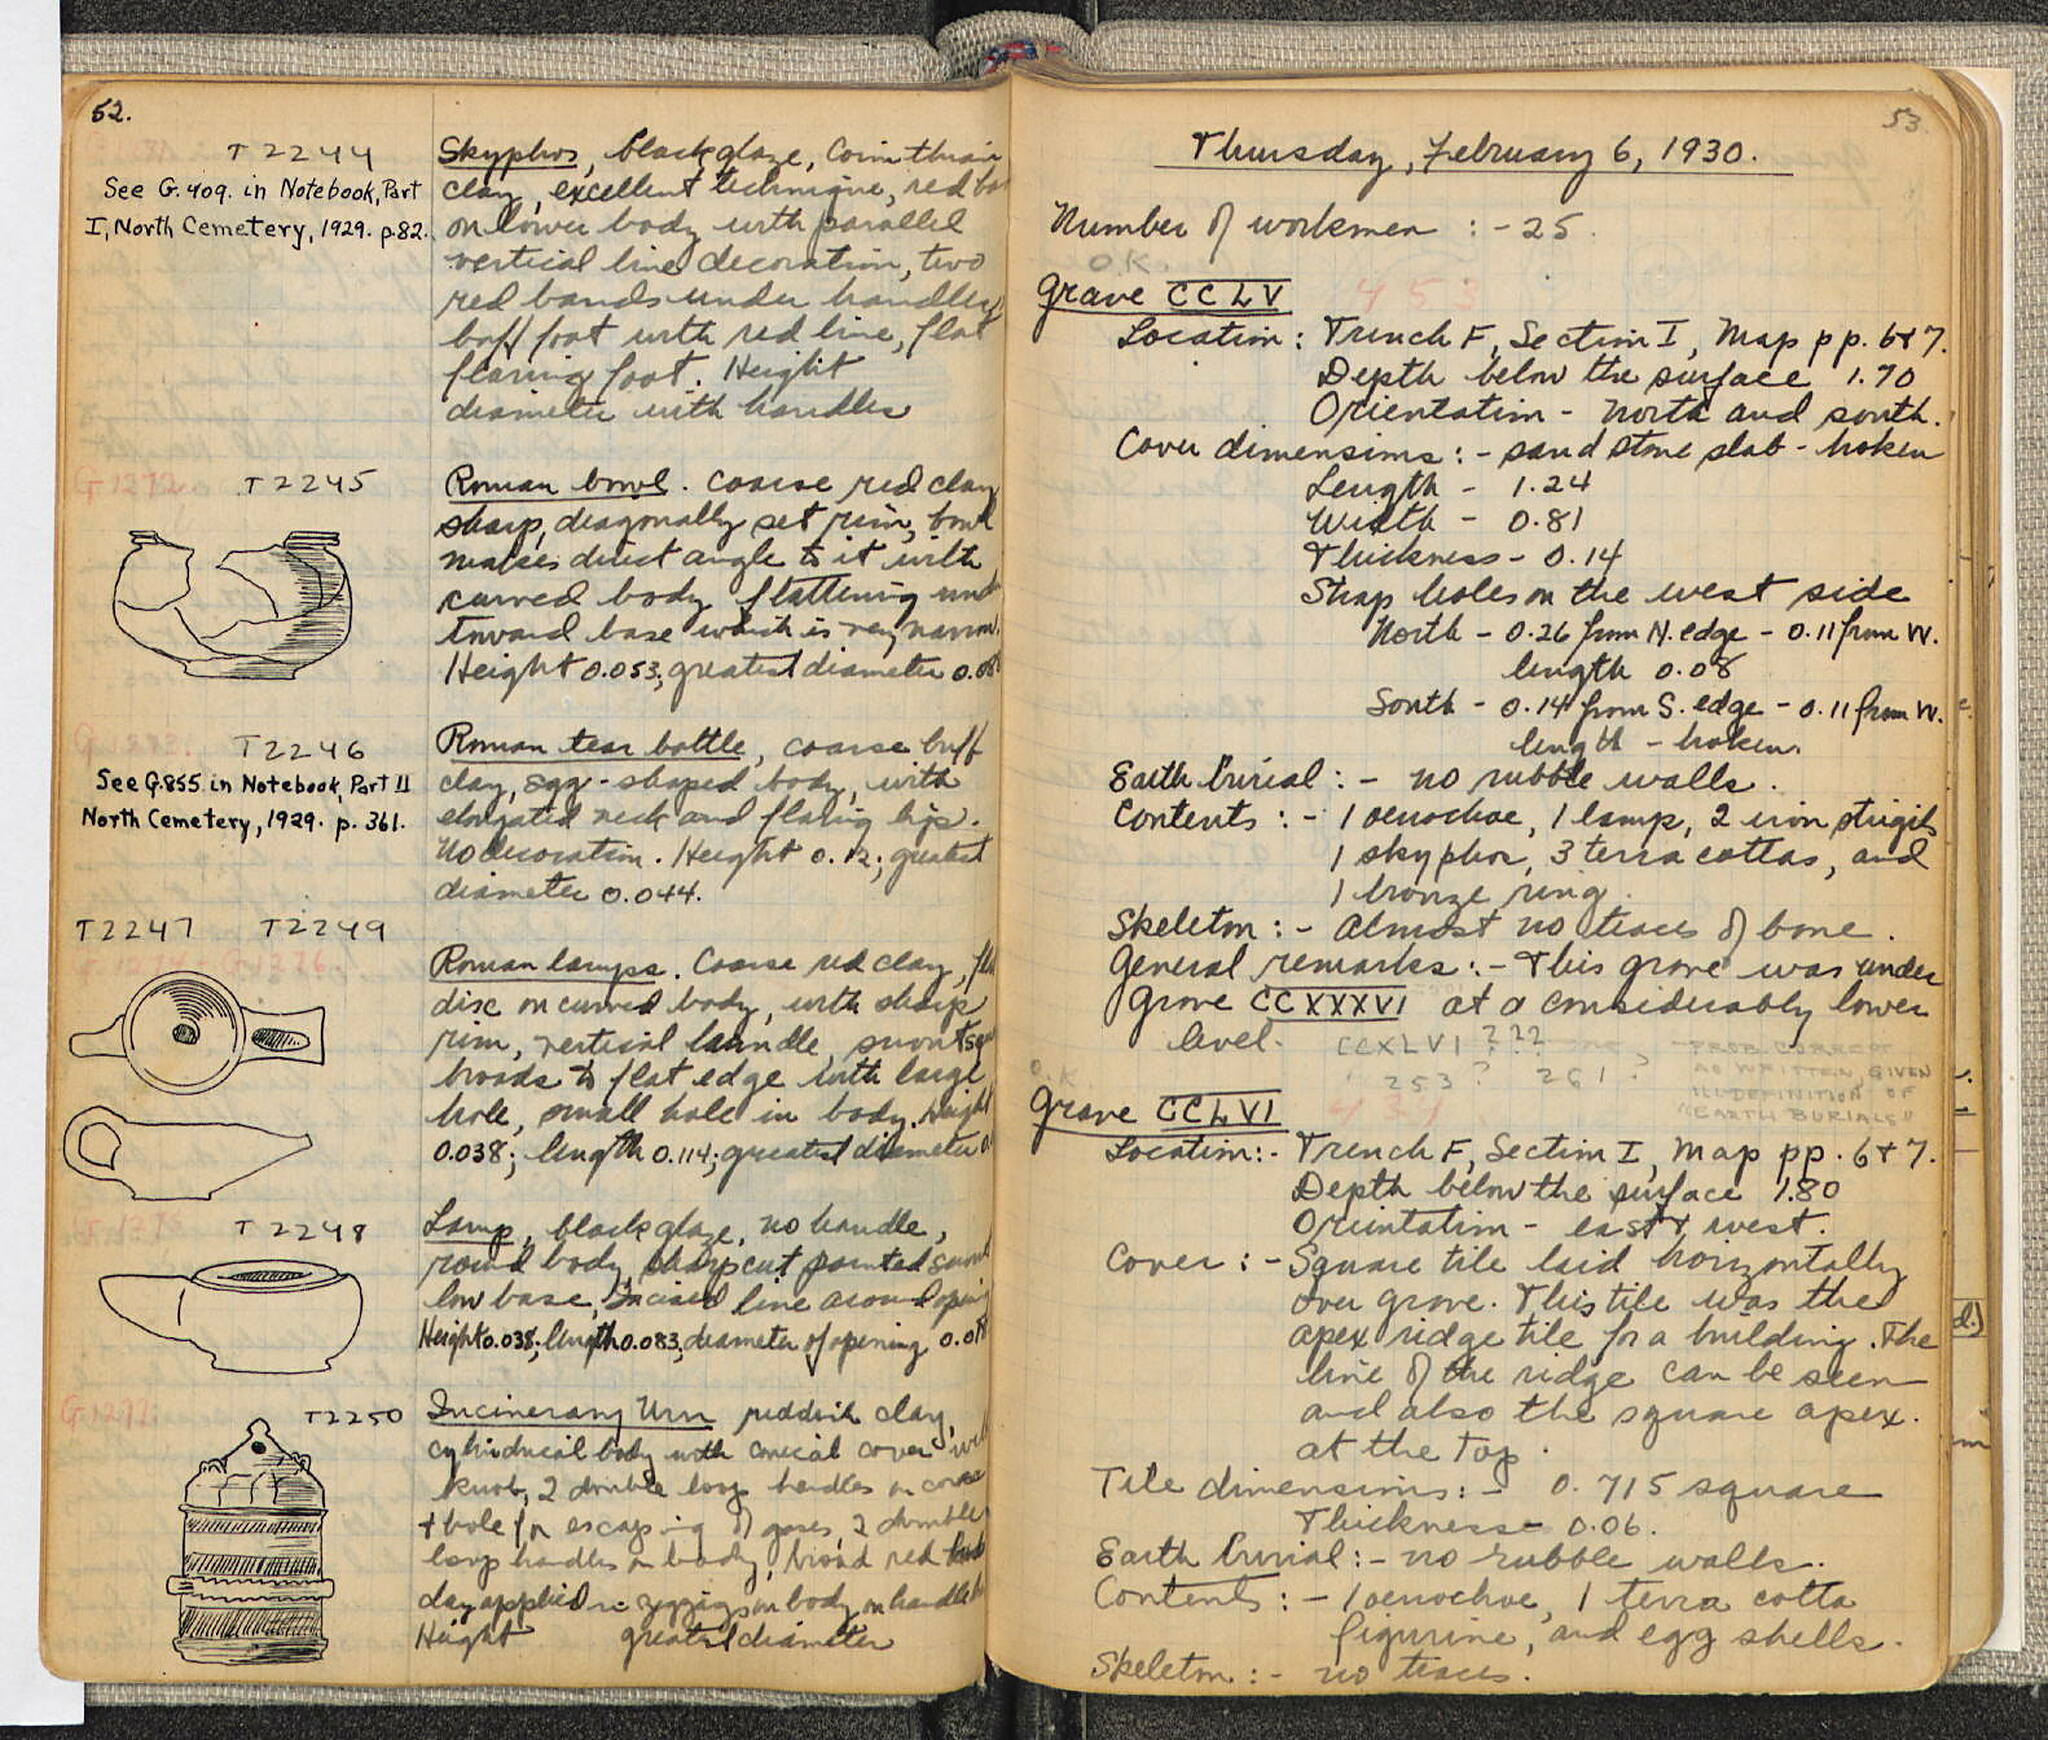 52.
T 2244
See G.409. in Notebook, Part
I, North Cemetery, 1929. p.82.
Skyphos, black glaze, Corinthian
clay, excellent technique, red
on lower body with parallel
vertical line decoration, two
red bands under handles,
buff foot with red line, flat
flaring foot. Height
diameter with handles
G 1272. T 2245
Roman bowl. Coarse red clay
sharp, diagonally set rim, bowl
makes direct angle to it with
curved body flattening
toward base which is very narrow.
Height 0.053; greatest diameter
G 1273. T2246
See G.855 in Notebook, Part II
North Cemetery, 1929. p. 361.
Roman tear bottle, coarse buff
clay, egg-shaped body, with
elongated neck and flaring lips.
No decoration. Height 0.12; greatest
diameter 0.044.
T2247 T2249
Roman lamps. Coarse red clay,
disc on curved body, with sharp
rim, vertical handle, snout
broads to flat edge with large
hole, small hole in body. Height
0.038; length 0.114; greatest diameter
T 2248
Lamp, black glaze, no handle,
round body, sharp cut pointed snout
low base, incised line around opening
Height 0.038; length 0.083; diameter of opening
T2250
Incinerary Urn reddish clay,
cylindrical body with conical cover with
knob, 2 double loop handles on cover
+ hole for escaping of gases, 2 double
loop handles on body, broad red bands
clay applied in zigzags on body on handle
Height greatest diameter
53
Thursday, February 6, 1930.
Number of workmen :- 25.
O.K.
Grave CCLV 453
Location: Trench F, Section I, Map pp. 6+7.
Depth below the surface 1.70
Orientation - north and south.
Cover dimensions:- sand stone slab - broken
Length - 1.24
Width - 0.81
Thickness - 0.14
Strap holes on the west side
North - 0.26 from N. edge - 0.11 from W.
length 0.08
South - 0.14 from S. edge - 0.11 from W.
length - broken.
Earth burial:- no rubble walls.
Contents:- 1 oenochoe, 1 lamp, 2 iron strigils
1 skyphos, 3 terra cottas, and
1 bronze ring.
Skeleton:- Almost no traces of bone.
General remarks:- This grave was under
Grave CCXXXVI at a considerably lower
level. CCXLVI ???
253? 261?
PROB. CORRECT
AS WRITTEN, GIVEN
ILL-DEFINITION OF
"EARTH BURIALS"
O.K
Grave CCLVI
Location:- Trench F, Section I, Map pp. 6+7.
Depth below the surface 1.80
Orientation - east + west.
Cover:- Square tile laid horizontally
over grave. This tile was the
apex ridge tile for a building. The
line of the ridge can be seen
and also the square apex.
at the top.
Tile dimensions:- 0.715 square
Thickness - 0.06.
Earth burial:- no rubble walls.
Contents:- 1 oenochoe, 1 terra cotta
figurine, and egg shells.
Skeleton:- no traces.